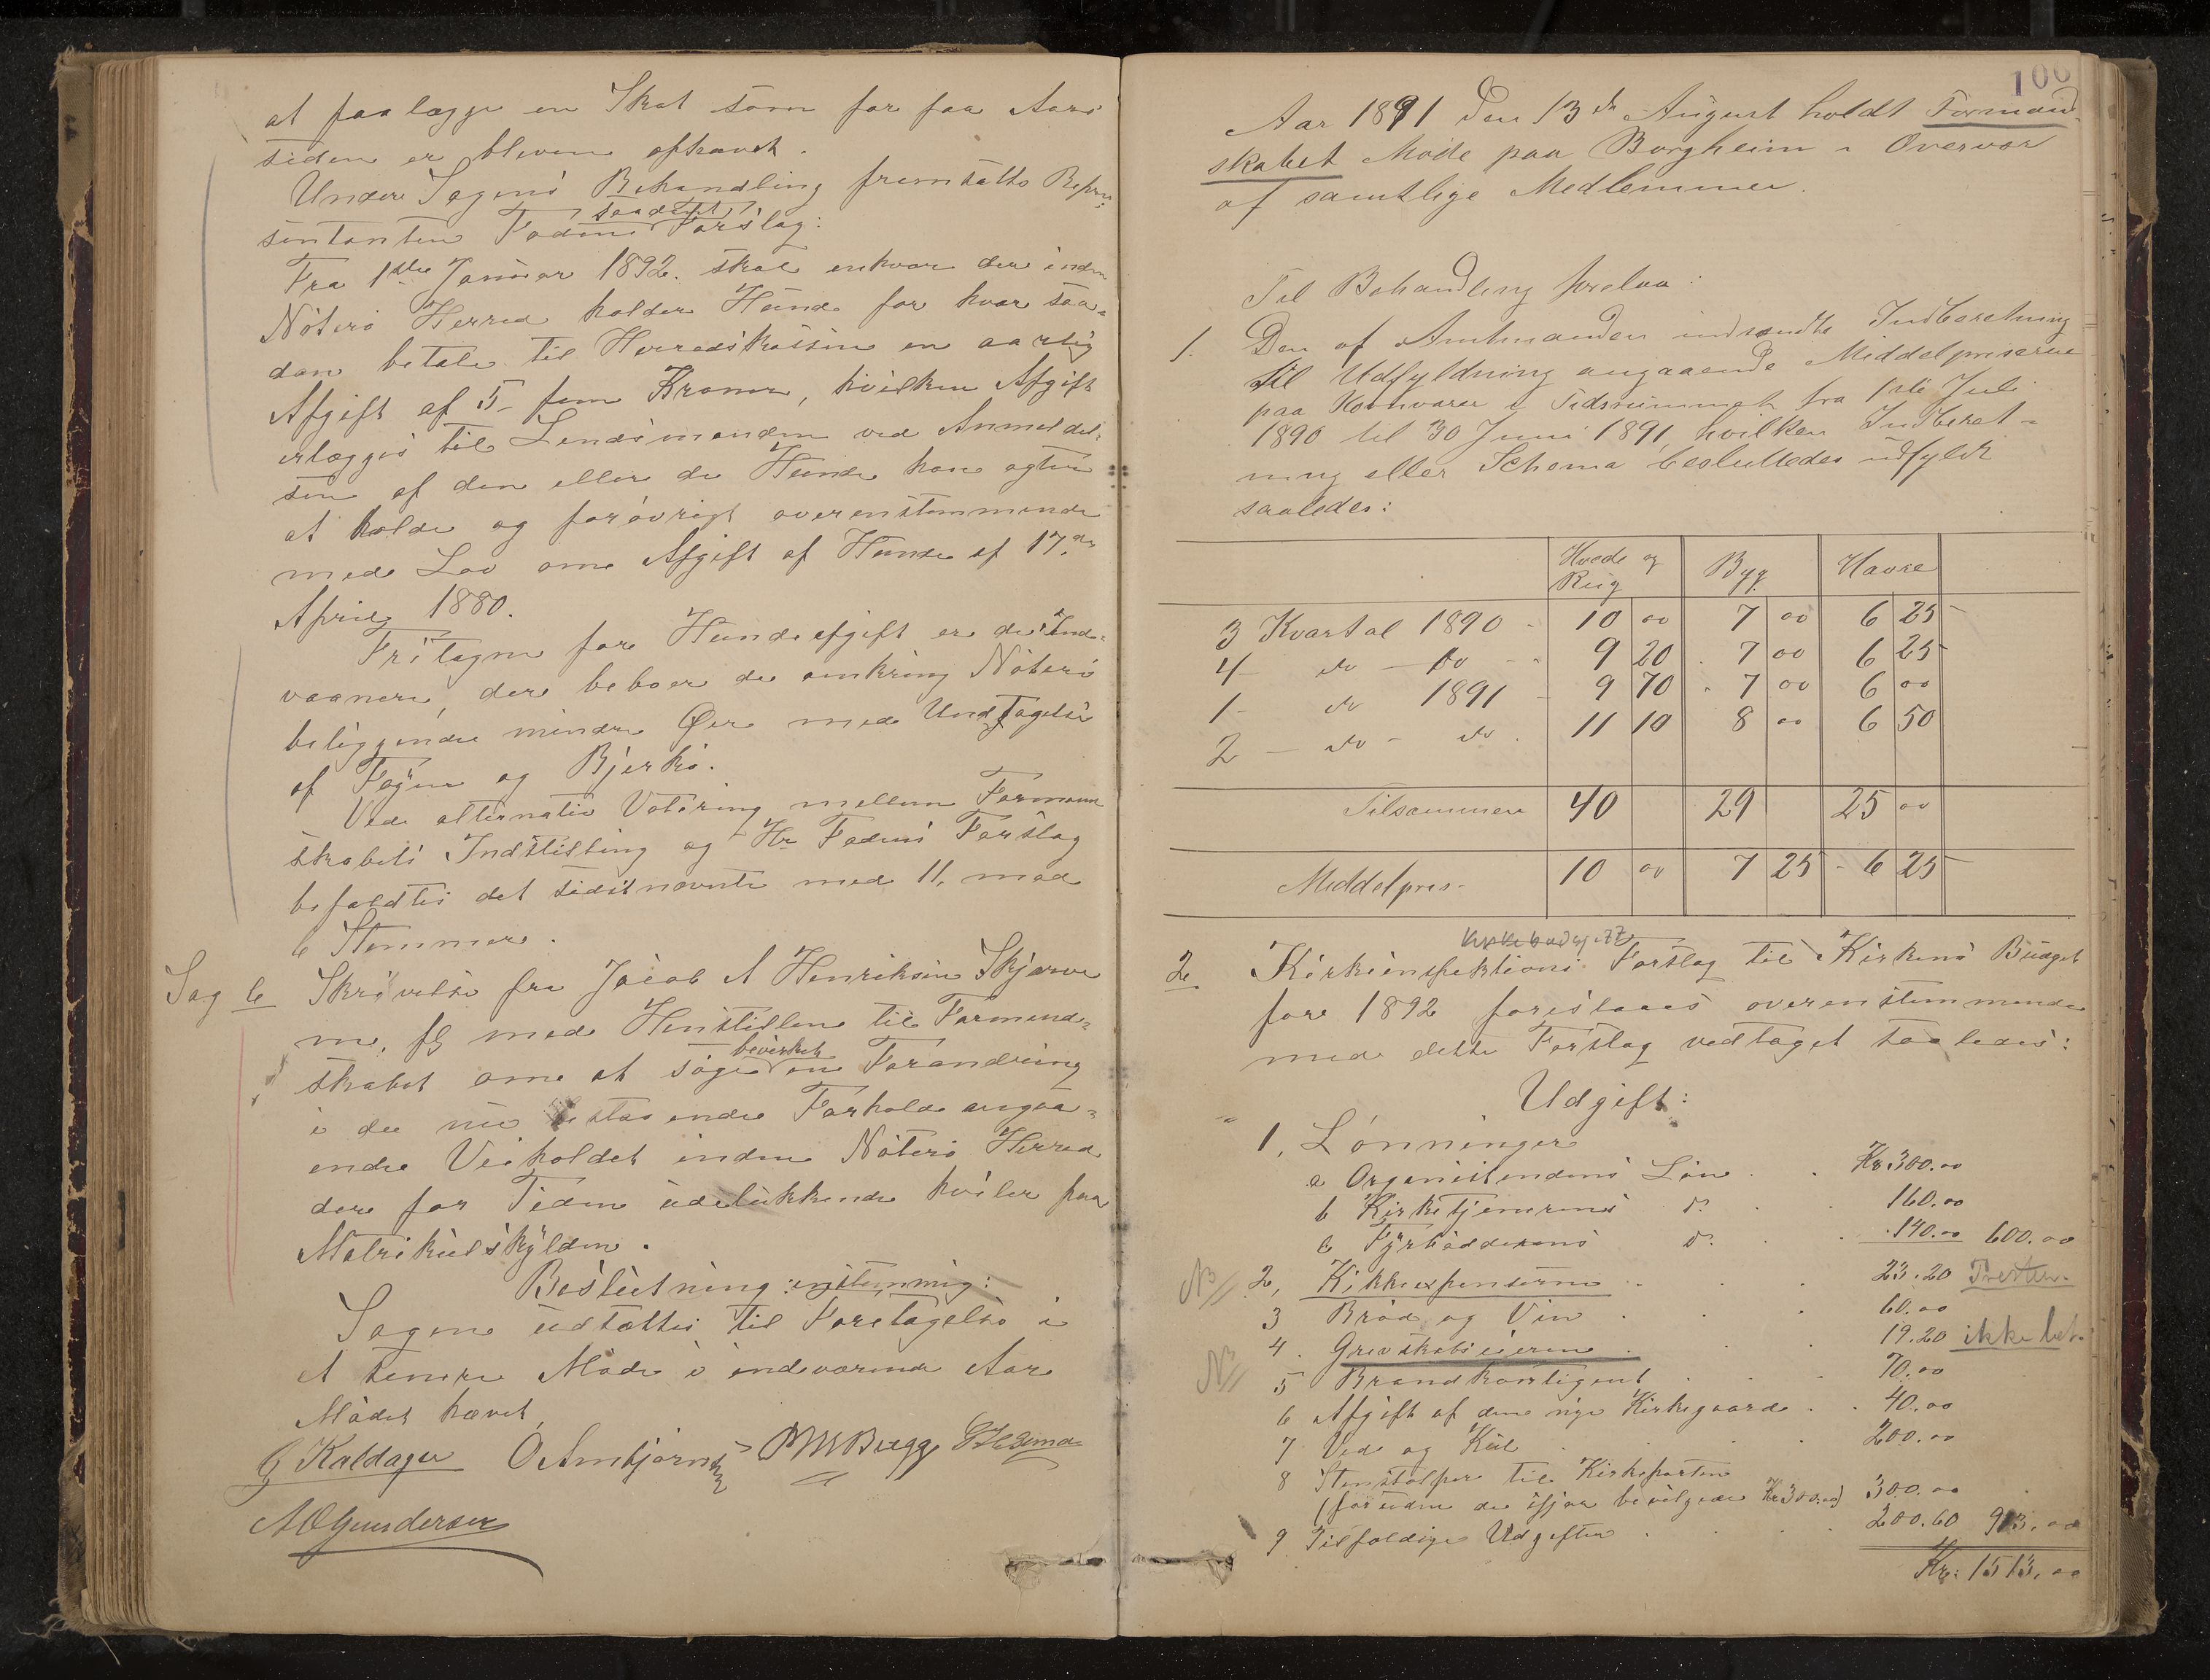 at paalægge en Skat som for faa Aar
siden er bleven ophævet.
Under Sagens Behandling fremsatte Repræ-
saadant
sentanten Fadum Forslag:
Fra 1ste Januar 1892 skal enhver der inden
Nøterø Herred holder Hunde for hver saa-
dan betale til Herredskassen en aarlig
Afgift af 5 - fem Kroner, hvilken Afgift
erlægges til Lensmanden ved Anmeldel-
sen af den eller de Hunde han agter
at holde og forøvrigt overenstemmende
med Lov om Afgift af Hunde af 17de
April 1880.
Fritagne for Hundeafgift er de Ind-
vaanere, der beboer de omkring Nøterø
beliggende mindre Øer med Undtagelse
af Føyen og Bjerkø.
Ved alternativ Votering mellem Formand
skabets Indstilling og Hr Fadums Forslag
befaldtes det sidstnævnte med 11, mod
6 Stemmer.
Sag 6 Skrivelse fra Jacob A Henriksen Skjerve
m. fl med Henstillen til Formand-
bevirket
skabet om at søge en Forandring
i de nu bestaaende Forhold angaa-
ende Veiholdet inden Nøterø Herred
der for Tiden udelukkende hviler paa
Matrikulskylden.
Beslutning: enstemmig:
Sagen udsættes til Foretagelse i
et senere Møde i indeværende Aar
Mødet hævet
G Kaldager O Ambjørnsen Bugge
A O Gundersen
100
Aar 1891 den 13de August holdt Formand-
skabet Møde paa Borgheim i Overvær
af samtlige Medlemmer.
Til Behandling forelaa:
1. Den af Amtmanden indsendte Indberetning
til Udfyldning angaaende Middelpriserne
paa Kornvarer i Tidsrummet fra 1ste Juli
1890 til 30 Juni 1891, hvilken Indberet-
ning eller Schema besluttedes udfyldt
saaledes:
Hvede og Rug Byg Havre
3 Kvartal 1890 - 10 00 7 00 6 25
4 - do - do - 9 20 7 00 6 25
1 - do 1891 - 9 70 7 00 6 00
2 - do - do. 11 10 8 00 6 50
Tilsammen 40 29 25 00
Middelpris - 10 00 7 25 6 25
Kirkebudgett
2 Kirkeinspektions Forslag til Kirkens Budget
for 1892 foreslaaes overenstemmende
med dette Forslag vedtaget saaledes:
Udgift:
1, Lønninger
a Organistendens Løn . . Kr 300.00
b Kirketjenerens do . . 160.00
c Fyrbødderens do . . 140.00 600.00
NB 2, Kirkeexpenserne . . 23.20 Presten.
3 Brød og Vin . . . 60.00
NB 4. Grevskabseieren . . 19.20 ikke bet.
5 Brandkontigent . . . 70.00
6 Afgift af den nye Kirkegaard . . 40.00
7 Ved og Kul . . . 200.00
8 Stenstolper til Kirkeporten
(foruden de ifjor bevilgede Kr 300.00) 300.00
9 Tilfældige Udgifter . . . 200.60 913.00
Kr: 1513.00